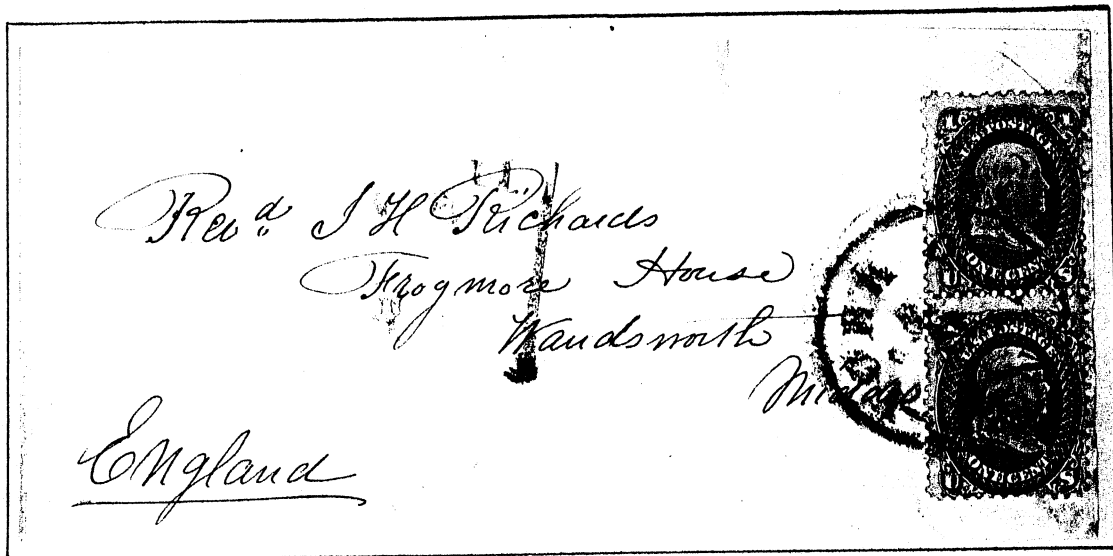 Rev.d J H Richards
Frogmore House
Wandsworth
England
1 1
U.S. POSTAGE
ONE CENT
U S
1 1
U.S. POSTAGE
ONE CENT
U S